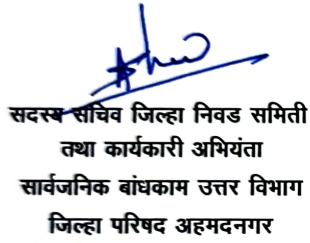 सदस्य सचिव जिल्हा निवड समिती
तथा कार्यकारी अभियंता
सार्वजनिक बांधकाम उत्तर विभाग
जिल्हा परिषद अहमदनगर